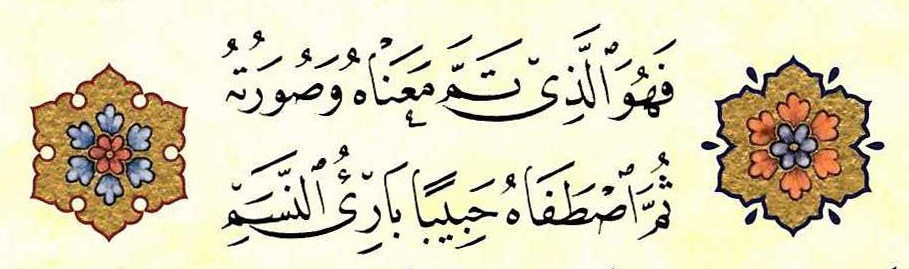 فَهُوَ ٱلَّذِي تَمَّ مَعْنَاهُ وَصُورَتُهُ
ثُمَّ ٱصْطَفَاهُ حَبِيبًا بَارِئُ ٱلنَّسَمِ